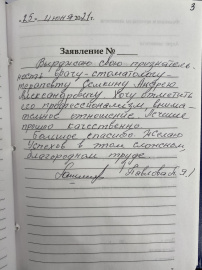 3
25 июня 21г.
Заявление №
Выражаю свою признатель-
ность врачу-стоматологу-
терапевту Андрею
Александровичу. Хочу отметить
его профессионализм, внима-
тельное отношение. Лечение
прошло качественно.
Большое спасибо. Желаю
успехов в этом сложном,
благородном труде.
Павлова